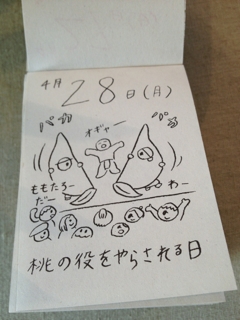 4月
28日(月)
パカ
オギャー
パカ
ももたろー
だー
わー
桃の役をやらされる日